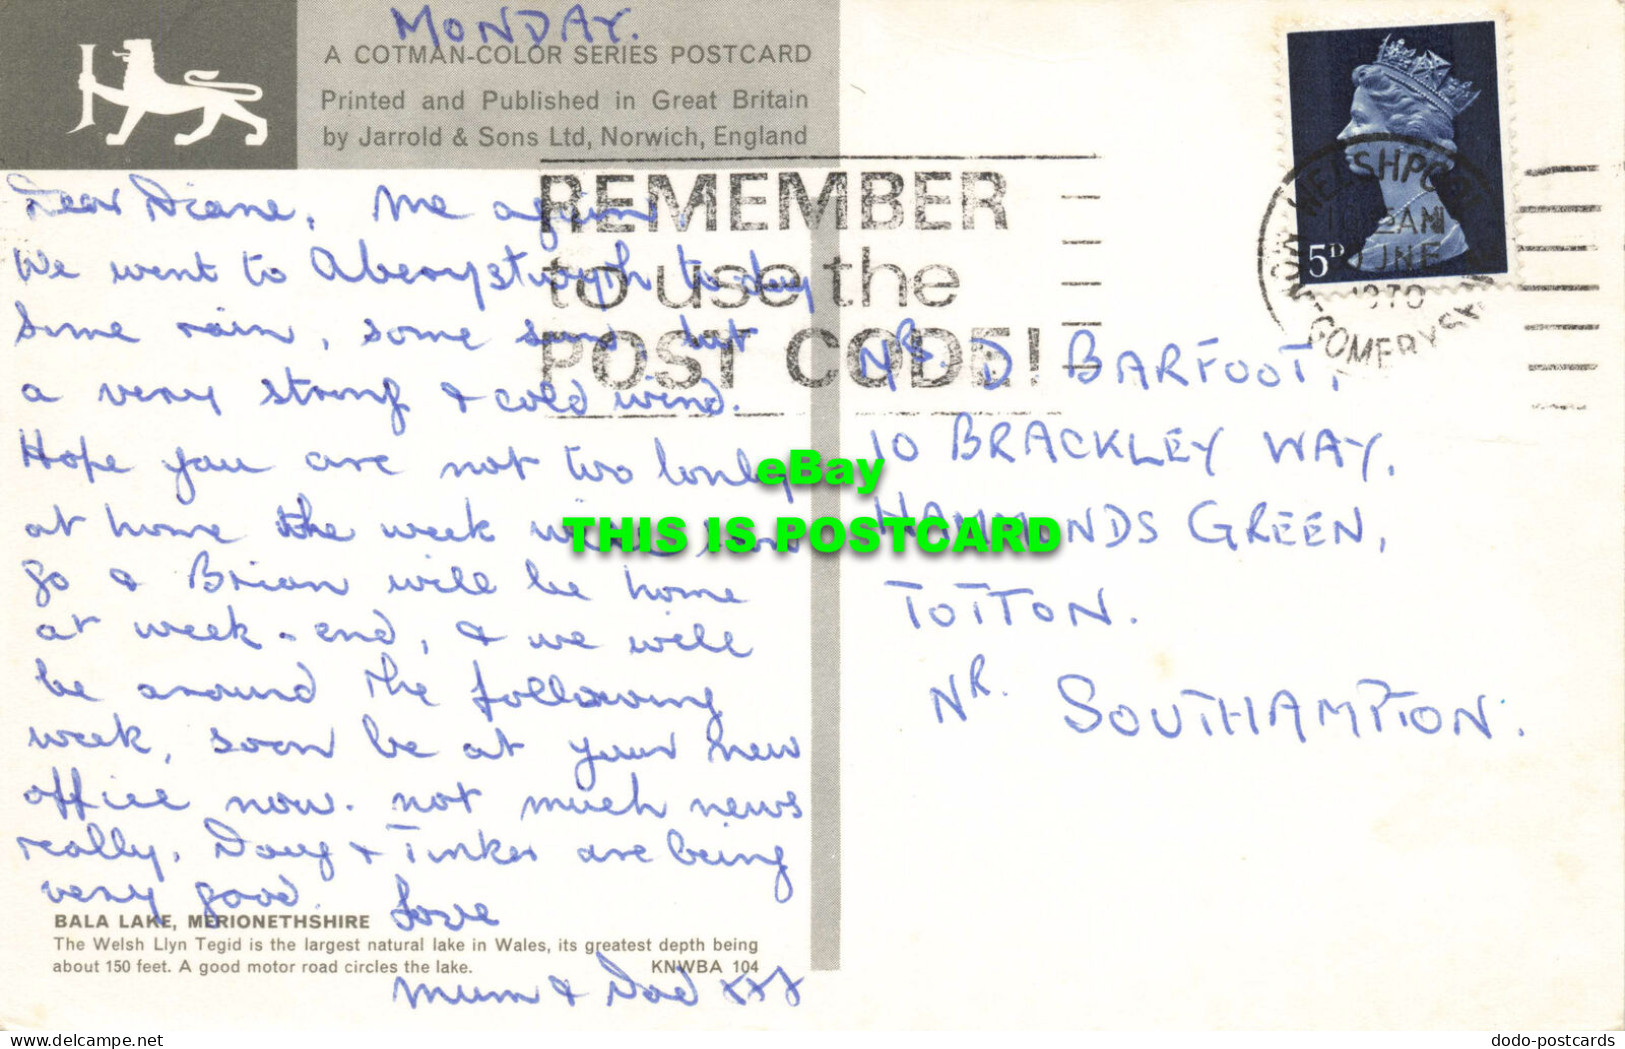 MONDAY.
A COTMAN-COLOR SERIES POSTCARD
Printed and Published in Great Britain
by Jarrold & Sons Ltd, Norwich, England
Dear Diane, Me again.
We went to Aberystwyth to-day
Some rain, some sun, but
a very strong & cold wind.
Hope you are not too lonely
at home the week will soon
go & Brian will be home
at week-end, & we will
be around the following
week, soon be at your new
office now. not much news
really. Doug & Tinker are being
very good. Love
Mum & Dad xxx
BALA LAKE, MERIONETHSHIRE
The Welsh Llyn Tegid is the largest natural lake in Wales, its greatest depth being
about 150 feet. A good motor road circles the lake. KNWBA 104
REMEMBER
to use the
POST CODE!
5D
WELSHPOOL
AM
JNE
1970
MONTGOMERYSH
D. BARFOOT,
10 BRACKLEY WAY,
HAMMONDS GREEN,
TOTTON.
NR. SOUTHAMPTON.
eBay
THIS IS POSTCARD
delcampe.net
dodo-postcards